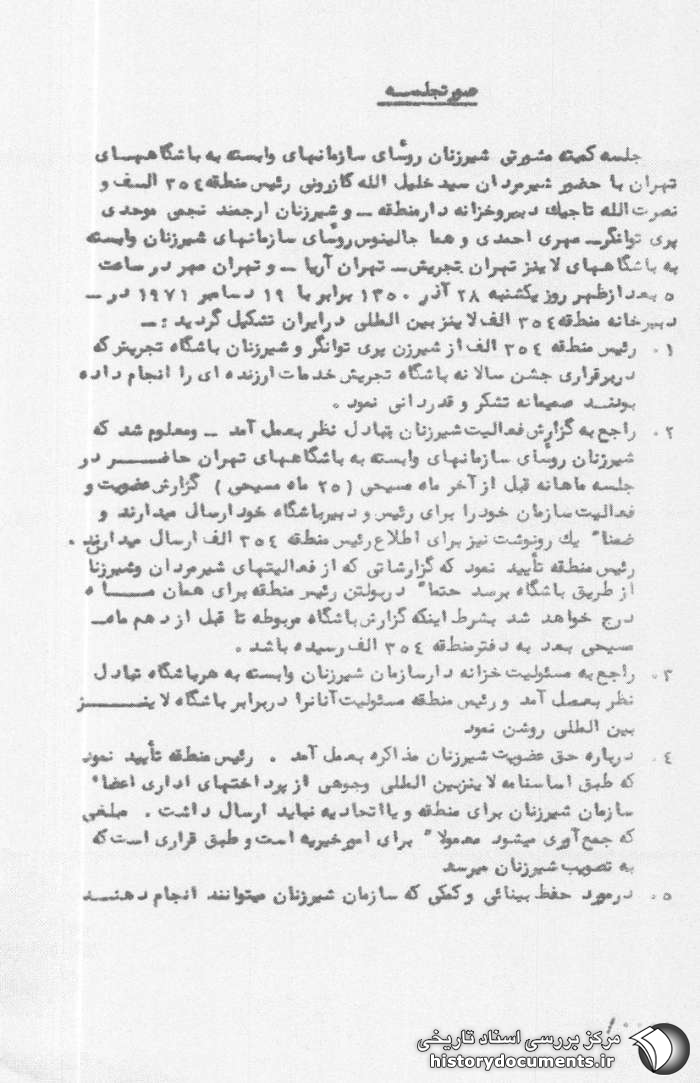 صورتجلسه
جلسه کمیته مشورتی شیرزنان روسای سازمانهای وابسته به باشگاههای
تهران با حضور شیرمردان سید خلیل الله کازرونی رئیس منطقه ۳۵۴ الف و
نصرت الله تاجیک دبیر و خزانه دار منطقه ـ و شیرزنان ارجمند نجمی موحدی
پری توانگرـ مهری احمدی و هما جالینوس روسای سازمانهای شیرزنان وابسته
به باشگاههای لاینز تهران تجریش ـ تهران آریا ـ و تهران مهر در ساعت
۵ بعد از ظهر روز یکشنبه ۲۸ آذر ۱۳۵۰ برابر با ۱۹ دسامبر ۱۹۷۱ در ـ
دبیرخانه منطقه ۳۵۴ الف لاینز بین المللی در ایران تشکیل گردید : ـ
۱ . رئیس منطقه ۳۵۴ الف از شیرزن پری توانگر و شیرزنان باشگاه تجریش که
در برقراری جشن سالانه باشگاه تجریش خدمات ارزنده ای را انجام داده
بودند صمیمانه تشکر و قدردانی نمود .
۲ . راجع به گزارش فعالیت شیرزنان تبادل نظر بعمل آمد ـ ومعلوم شد که
شیرزنان روسای سازمانهای وابسته به باشگاههای تهران حاضر در
جلسه ماهانه قبل از آخر ماه مسیحی ( ۲۵ ماه مسیحی ) گزارش عضویت و
فعالیت سازمان خود را برای رئیس و دبیر باشگاه خود ارسال میدارند و
ضمنا" یک رونوشت نیز برای اطلاع رئیس منطقه ۳۵۴ الف ارسال میدارند .
رئیس منطقه تأیید نمود که گزارشاتی که از فعالیتهای شیرمردان وشیرزنان
از طریق باشگاه برسد حتما" در بولتن رئیس منطقه برای همان ماه
درج خواهد شد بشرط اینکه گزارش باشگاه مربوطه تا قبل از دهم ماه
مسیحی بعد به دفتر منطقه ۳۵۴ الف رسیده باشد .
۳ . راجع به مسئولیت خزانه دار سازمان شیرزنان وابسته به هر باشگاه تبادل
نظر بعمل آمد و رئیس منطقه مسئولیت آنانرا در برابر باشگاه لاینز
بین المللی روشن نمود
۴ . درباره حق عضویت شیرزنان مذاکره بعمل آمد . رئیس منطقه تأیید نمود
که طبق اساسنامه لاینز بین المللی وجوهی از پرداختهای اداری اعضا"
سازمان شیرزنان برای منطقه و یا اتحادیه نباید ارسال داشت . مبلغی
که جمع آوری میشود معمولا" برای امور خیریه است و طبق قراری است که
به تصویب شیرزنان میرسد
۵ . در مورد حفظ بینائی و کمکی که سازمان شیرزنان میتوانند انجام دهند
۱۰۰
مرکز بررسی اسناد تاریخی
historydocuments.ir